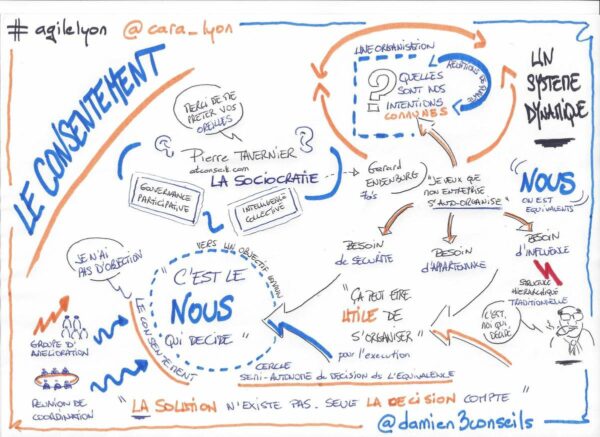 #agilelyon @cara_lyon
LE CONSENTEMENT
MERCI DE ME
PRÊTER VOS
OREILLES
Pierre TAVERNIER
atconseil.com
LA SOCIOCRATIE
GOUVERNANCE
PARTICIPATIVE
INTELLIGENCE
COLLECTIVE
UNE ORGANISATION
?
QUELLES
SONT NOS
INTENTIONS
COMMUNES
RELATIONS DE
UN
SYSTEME
DYNAMIQUE
Gerard
ENDENBURG
70's
"JE VEUX QUE
MON ENTREPRISE
S'AUTO-ORGANISE"
NOUS
ON EST
EQUIVALENTS
BESOIN
DE SECURITE
BESOIN
D'APPARTENANCE
BESOIN
D'INFLUENCE
STRUCTURE
HIERARCHIQUE
TRADITIONNELLE
C'EST
MOI QUI
DÉCIDE
JE N'AI
PAS D'OBJECTION
VERS UN OBJECTIF COMMUN
"C'EST LE
NOUS
QUI DECIDE"
LE CONSENTEMENT
"ÇA PEUT ETRE
UTILE DE
S'ORGANISER"
pour l'execution
CERCLE
SEMI-AUTONOME DE DECISION DS L'EQUIVALENCE
GROUPE D'
AMELIORATION
REUNION DE
COORDINATION
"LA SOLUTION N'EXISTE PAS. SEULE LA DECISION COMPTE"
@damien3conseils